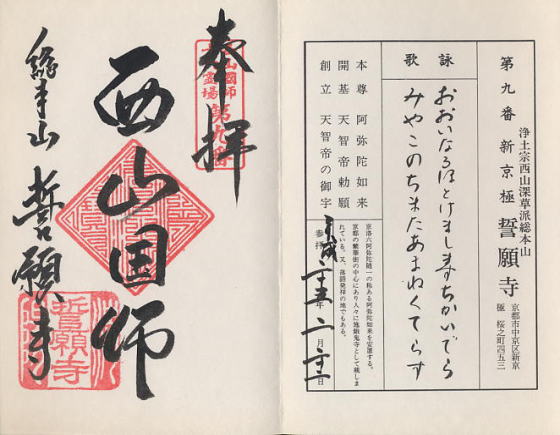 第九番 新京極 誓願寺
浄土宗西山深草派総本山
京都市中京区新京
極 桜之町四五三
詠歌
おおいなるほとけましますちかいでら
みやこのちまたあまねくてらす
本尊 阿弥陀如来
開基 天智帝勅願
創立 天智帝の御宇
京洛六阿弥陀随一の称ある阿弥陀如来を安置する。
京都の繁華街の中心にあり人々に地蹈鬼寺として親しま
れている。又、落語発祥の地でもある。
参拝 平成二十五年 二月二十二日
奉拝
西山国師
霊場
第九番
西山国師
総本山 誓願寺
誓願寺